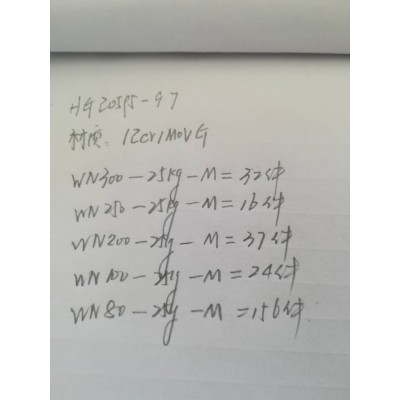 HG20595-97
材质：12Cr1MoVG
WN300-25kg-M=32件
WN250-25kg-M=16件
WN200-25kg-M=37件
WN100-25kg-M=24件
WN80-25kg-M=156件